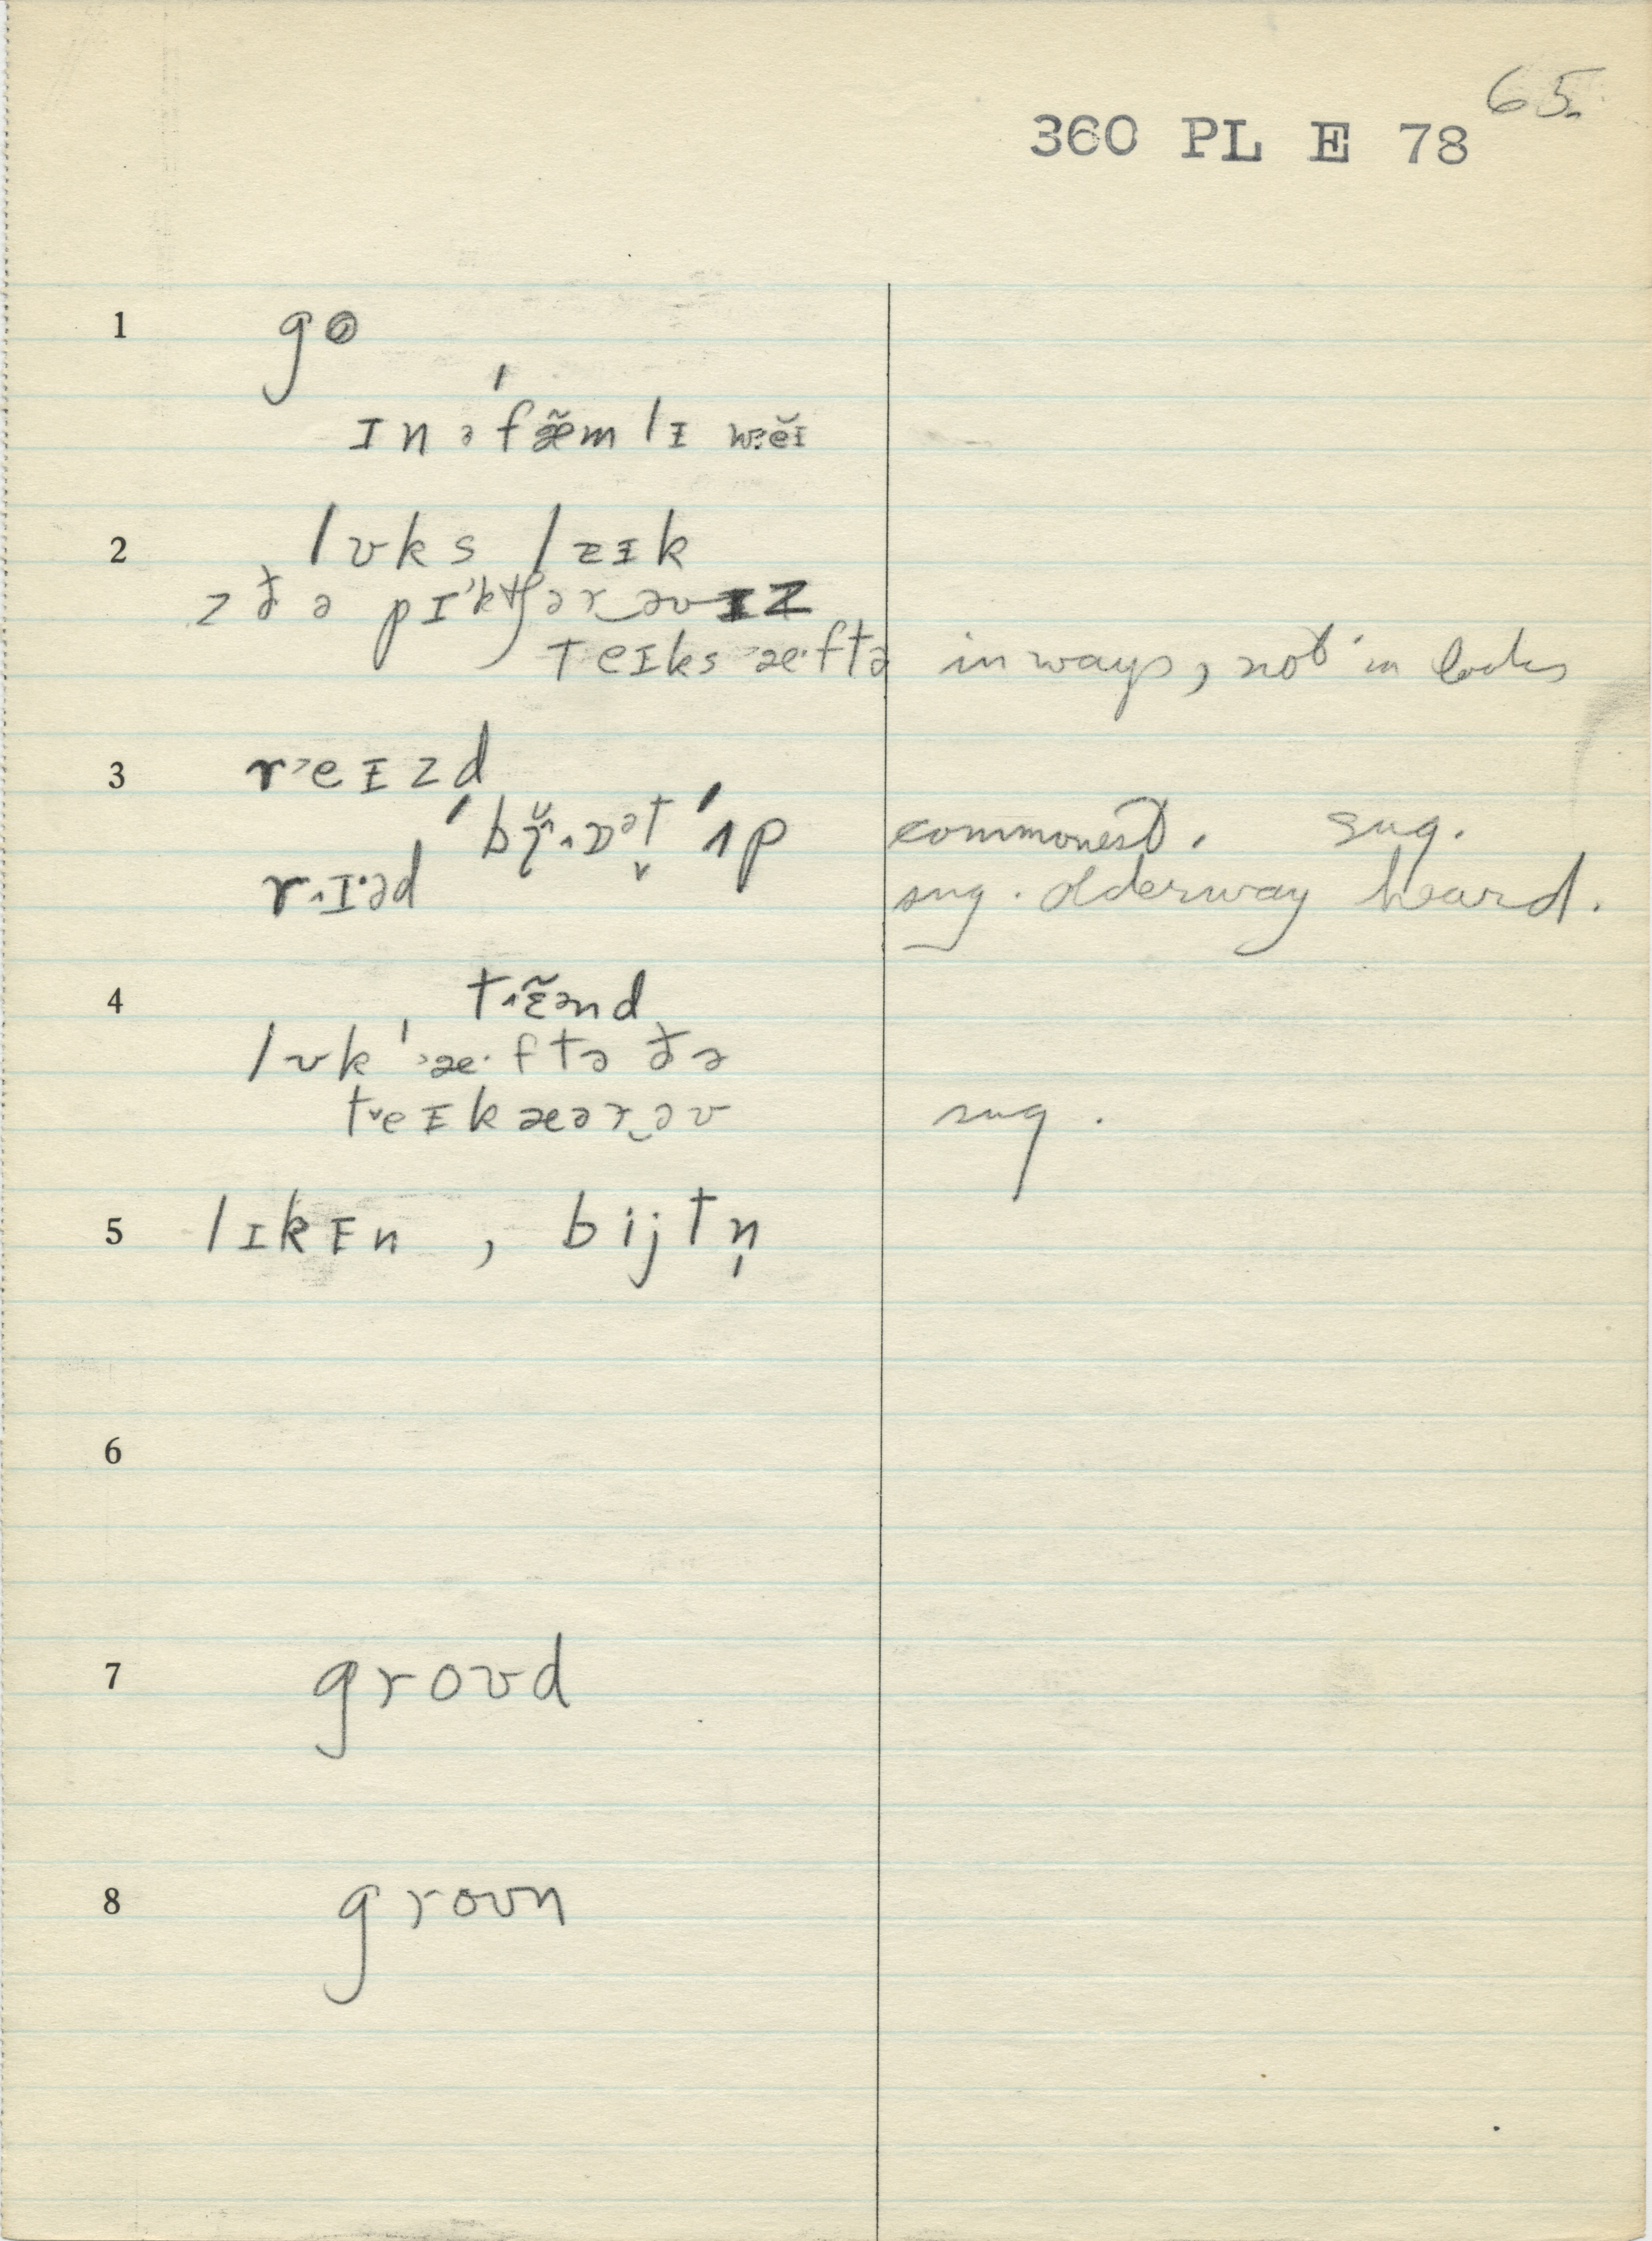 65.
360 PL E 78
1 go
ɪn ə fæ̃mlɪ wɛĕɪ
2 lʊks lɪk
z ðə pɪktʃər‿əv ɪz
teɪks æˑftə in ways, not in looks
3 r˃eɪzd
ˈʌp commonest. sug.
r˄ɪˑəd sug. older way heard.
4 t˄ɛ̃ənd
lʊk ˈ˃æˑftə ðə
t˅eɪkæər‿əv sug.
5 lɪkɪn , bijtn̩
6
7 groʊd
8 groʊn